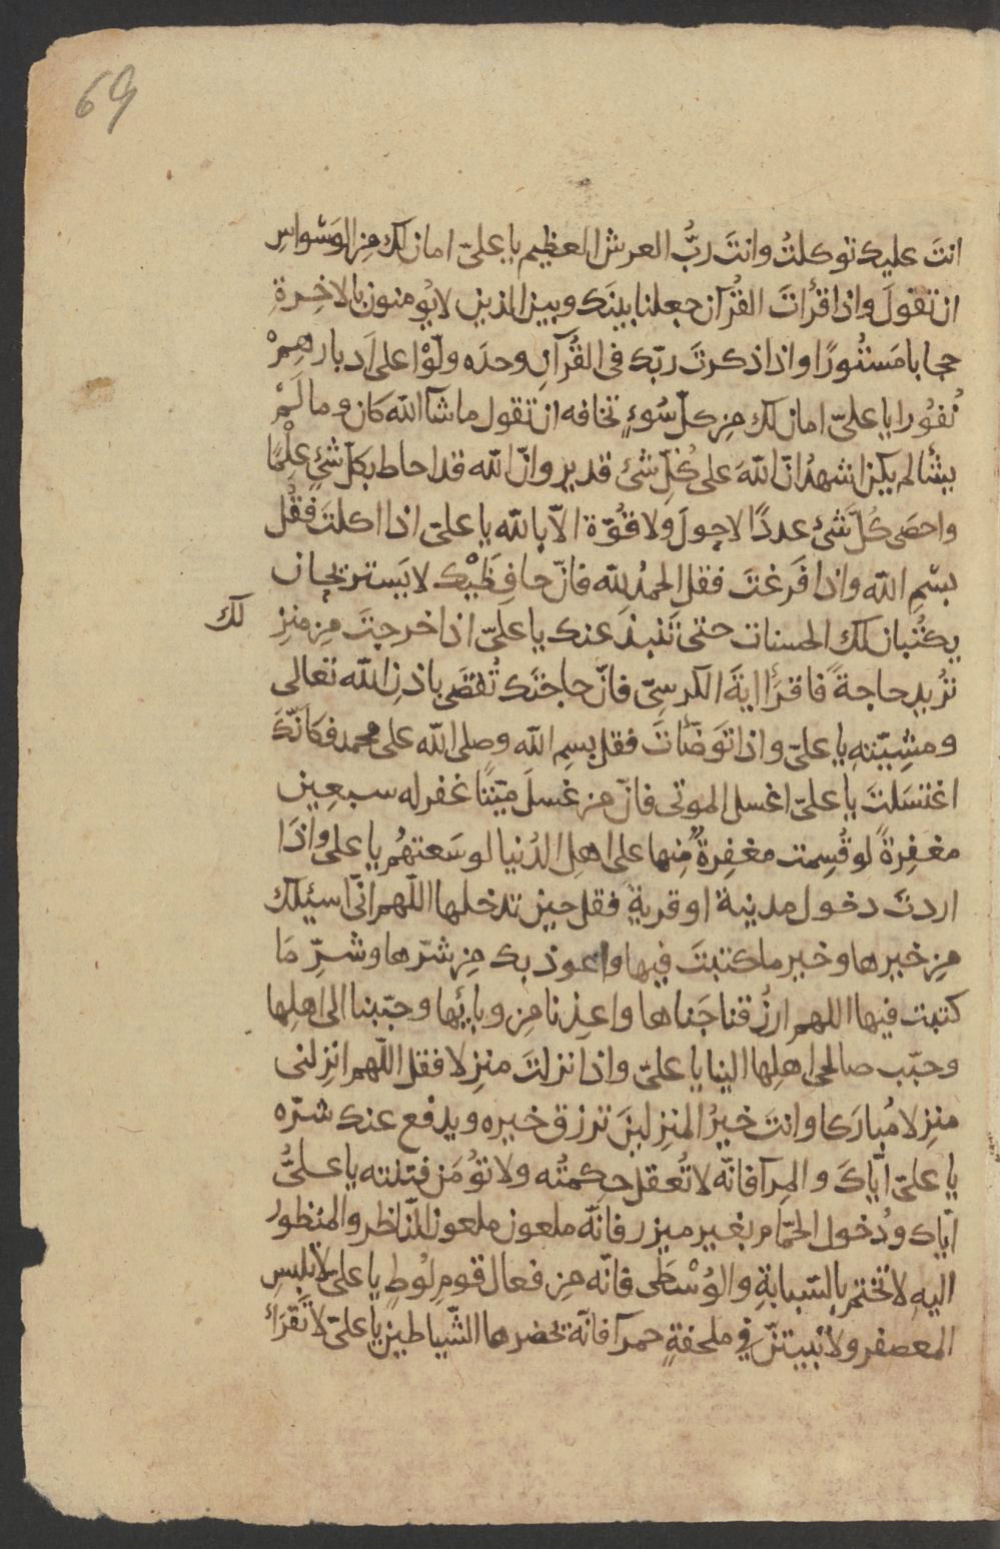 69
انتَ عليك توكلتُ وانتَ ربُّ العرش العظيم يا علىّ امان لك مِن الوَسْواسِ
ان تقولَ واذا قرأتَ القُرآن جعلنا بينَك وبين الذين لا يُومنون بالاخِرةِ
حجابا مَستُورًا واذا ذكرتَ ربّك فى القُرآنِ وحدَه ولّوْا على اَدبارهِمْ
نُفوُرا يا علىّ امان لك مِن كلّ سُوءٍ تخافه ان تقول ماشآ الله كان وما لَمْ
يشأ لم يكن اشهدُ انّ اللهَ على كُلّ شئ قدير وانّ الله قد احاط بكلّ شئٍ عِلْمًا
واحصَى كُلّ شَئ عددًا لا حولَ ولا قُوّة الاّ بالله يا علىّ اذا اكلتَ فقُل
بسْمِ الله واذا فَرغتَ فقل الحمدُ لله فانّ حافِظَيْك لا يَستريحان
يكتُبان لك الحسنات حتى تَنبذَ عنك يا علَىّ اذا خرجتَ مِن منزِ لك
تُريد حاجةً فاقرَأ ايةَ الكرسىّ فانّ حاجتَك تُقضَى باذنِ الله تعالى
ومشِيّتهِ يا علىّ واذا تَوَضّأتَ فقل بسِم الله وصلى الله على محمد فكانّكَ
اغتسَلتَ يا علىّ اغسل الموتى فانّ من غسلَ ميّتًا غفر له سبعِين
مغفِرةً لو قُسِمت مغفِرةٌ مِنها على اهل الدُنيا لوسَعتهُم يا على واذَا
اردتَ دخول مدينة او قريةٍ فقل حين تدخلها اللّهم انّى اسئلك
مِن خيرها وخير ما كتبتَ فيها واعوذ بك مِن شرّها وشرِّ مَا
كتبت فيها اللهم ارزُقنا جَناها واعِذنا مِن وبائِها وحبّبنا الى اهلِها
وحبّب صالحى اهلِها الينا يا علىّ واذا نزلتَ منزِلا فقل اللّهم انزِلنى
منزِلا مُبارَكا وانتَ خيرُ المنزِلينَ تُرزق خيره ويدفع عنك شرّه
يا علىّ ايّاكَ والمِرآ فانّه لا تُعقل حِكمتُه ولا تؤُمَن فِتنته يا علىُّ
ايّاك ودُخول الحمّام بغير ميزر فانّه ملعون ملعون النّاظر والمنظور
اليهِ لا تختم بالسّبابةِ والوُسْطَى فانّه مِن فعال قومِ لُوطٍ يا علىّ لا تلبسِ
المعصفر ولا تبيتنّ فِي ملحفةٍ حمرآ فانّه يحضرها الشّياطين يا علىّ لا تَقرَاْ